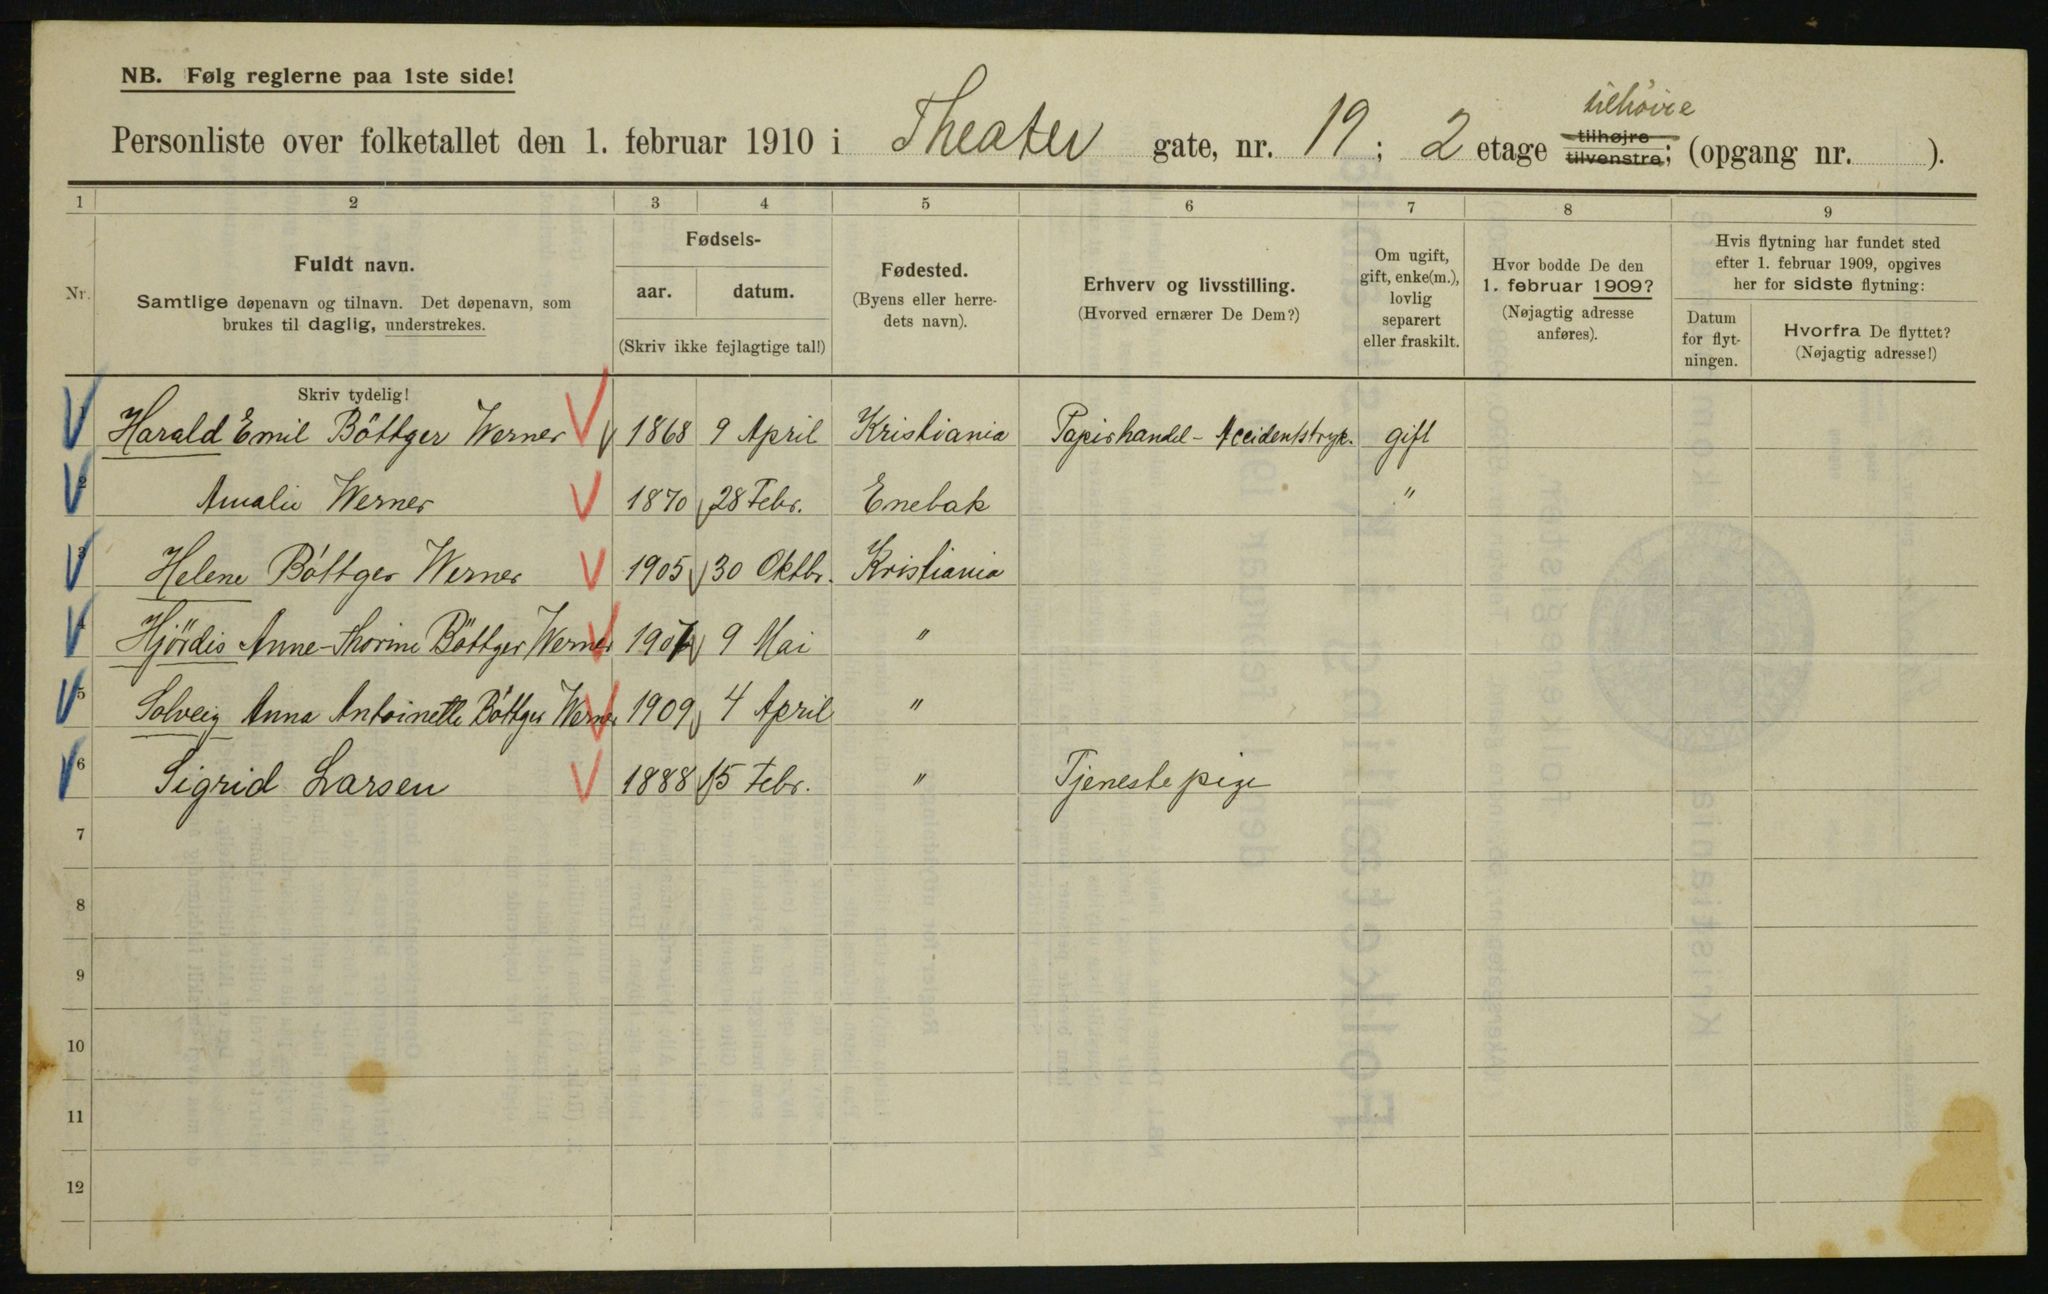 NB. Følg reglerne paa 1ste side!
tilhöire
Personliste over folketallet den 1. februar 1910 i Theater gate, nr. 19; 2 etage tilhøjre tilvenstre; (opgang nr. ).
1 2 3 4 5 6 7 8 9
Nr.
Fuldt navn.
Samtlige døpenavn og tilnavn. Det døpenavn, som
brukes til daglig, understrekes.
Fødsels-
aar. datum.
(Skriv ikke fejlagtige tal!)
Fødested.
(Byens eller herre-
dets navn).
Erhverv og livsstilling.
(Hvorved ernærer De Dem?)
Om ugift,
gift, enke(m.),
lovlig
separert
eller fraskilt.
Hvor bodde De den
1. februar 1909?
(Nøjagtig adresse
anføres).
Hvis flytning har fundet sted
efter 1. februar 1909, opgives
her for sidste flytning:
Datum
for flyt-
ningen.
Hvorfra De flyttet?
(Nøjagtig adresse!)
Skriv tydelig!
1 Harald Emil Böttger Werner 1868 9 April Kristiania Papirhandel - Accidentstryk. gift
2 Amalie Werner 1870 28 Febr. Enebak "
3 Helene Böttger Werner 1905 30 Oktbr. Kristiania
4 Hjördis Anne-Thorine Böttger Werner 1907 9 Mai "
5 Solveig Anna Antoinette Böttger Werner 1909 4 April "
6 Sigrid Larsen 1888 15 Febr. " Tjenestepige
7
8
9
10
11
12